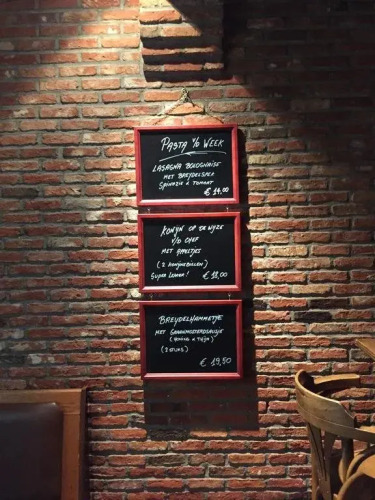 PASTA % WEEK
LASAGNA BOLOGNAISE
MET BREYDELSPEK
SPINAZIE & TOMAAT
€ 14,00
KONIJN OP DE WIJZE
V/D CHEF
MET APPELTJES
(2 KONIJNEBILLEN)
SUPER LEKKER! € 18,00
BREYDELHAMMETJE
MET GRAANMOSTERDSAUSJE
(HONING & TIJM)
(2 STUKS)
€ 19,50